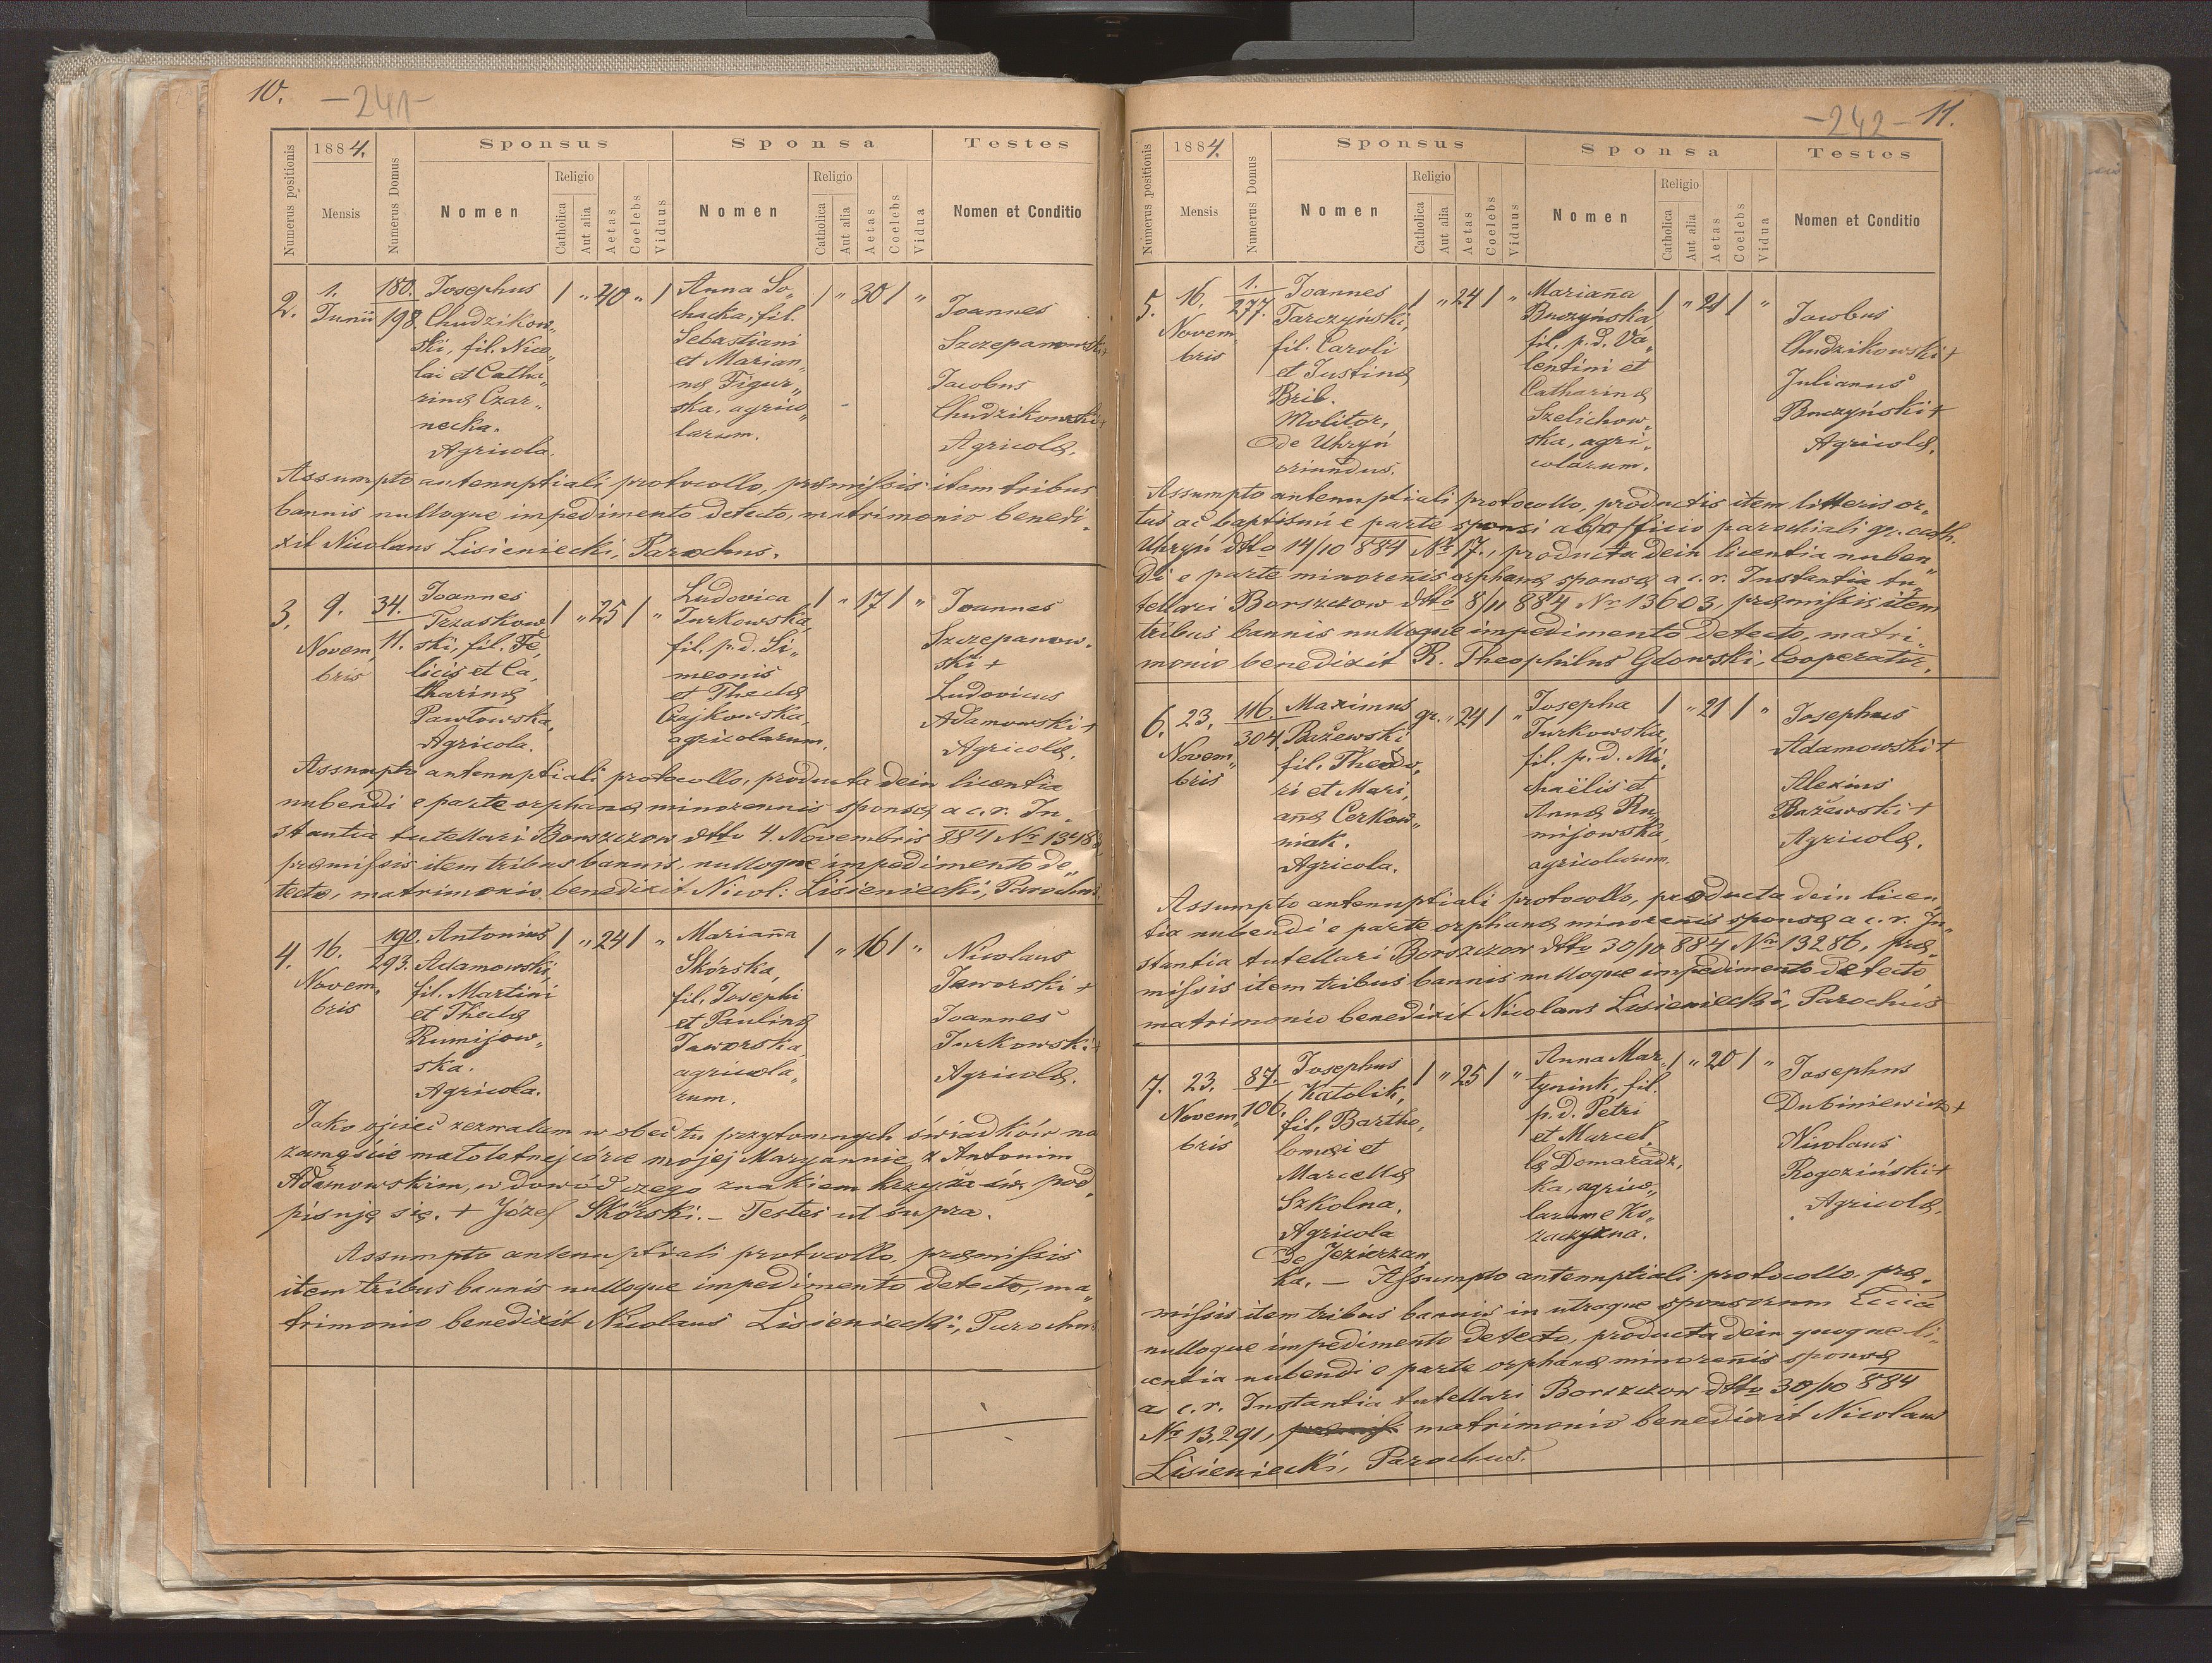 10. —241—
Numerus positionis
1884.
Mensis
Numerus Domus
Sponsus
Nomen
Religio
Catholica
Aut alia
Aetas
Coelebs
Viduus
Sponsa
Nomen
Religio
Catholica
Aut alia
Aetas
Coelebs
Vidua
Testes
Nomen et Conditio
2.
1.
Junii
180.
198.
Josephus
Chudzikow„
ski, fil. Nico„
lai et Catha„
rinæ Czar„
necka.
Agricola.
1 „ 40 „ 1
Anna So„
chacka, fil.
Sebastiani
et Marian„
næ Figur„
ska, agrico„
larum.
1 „ 30 1 „
Joannes
Szczepanowski+
Jacobus
Chudzikowski+
Agricolæ.
Assumpto antenuptiali protocollo, præmissis item tribus
bannis nulloque impedimento detecto, matrimonio benedi„
xit Nicolaus Lisieniecki, Parochus.
3.
9.
Novem„
bris
34.
11.
Joannes
Trzaskow„
ski, fil. Fe„
licis et Ca„
tharinæ
Pawłowska,
Agricola.
1 „ 25 1 „
Ludovica
Turkowska,
fil. p.d. Si„
meonis
et Theclæ
Czajkowska,
agricolarum.
1 „ 17 1 „
Joannes
Szczepanow„
ski +
Ludovicus
Adamowski+
Agricolæ.
Assumpto antenuptiali protocollo, producta dein licentia
nubendi e parte orphanæ minorennis sponsæ a c.r. In„
stantia tutellari Borszczow dtto 4 Novembris 884 Nr 13488,
præmissis item tribus bannis, nulloque impedimento de„
tecto, matrimonio benedixit Nicol: Lisieniecki, Parochus.
4.
16.
Novem„
bris
190.
293.
Antonius
Adamowski,
fil. Martini
et Theclæ
Rumijow„
ska.
Agricola.
1 „ 24 1 „
Marianna
Skórska,
fil. Josephi
et Paulinæ
Jaworska,
agricola„
rum.
1 „ 16 1 „
Nicolaus
Jaworski +
Joannes
Turkowski+
Agricolæ.
Jako ojciec zezwalam w obec tu przytomnych świadków na
zamęście małoletnej córce mojej Maryannie z Antonim
Adamowskim, w dowód czego znakiem krzyża św. pod„
pisuję się. + Józef Skórski. — Testes ut supra.
Assumpto antenuptiali protocollo, præmissis
item tribus bannis nulloque impedimento detecto, ma„
trimonio benedixit Nicolaus Lisieniecki, Parochus
—242— 11.
Numerus positionis
1884.
Mensis
Numerus Domus
Sponsus
Nomen
Religio
Catholica
Aut alia
Aetas
Coelebs
Viduus
Sponsa
Nomen
Religio
Catholica
Aut alia
Aetas
Coelebs
Vidua
Testes
Nomen et Conditio
5.
16.
Novem„
bris
1.
277.
Joannes
Tarczyński,
fil. Caroli
et Justinæ
Brib.
Molitor,
de Uhryń
oriundus.
1 „ 24 1 „
Marianna
Buczyńska,
fil. p.d. Va„
lentini et
Catharinæ
Szelichow„
ska, agri„
colarum.
1 „ 21 1 „
Jacobus
Chudzikowski+
Julianus
Buczyński+
Agricolæ.
Assumpto antenuptiali protocollo, productis item litteris or„
tus ac baptismi e parte sponsi ab officio parochiali gr. cath.
Uhryń dtto 14/10 884 Nr 17., producta dein licentia nuben„
di e parte minorennis orphanæ sponsæ a c.r. Instantia tu„
tellari Borszczow dtto 8/11 884 Nr 13603, præmissis item
tribus bannis nulloque impedimento detecto, matri„
monio benedixit R. Theophilus Gdowski, Cooperator.
6.
23.
Novem„
bris
116.
304.
Maximus
Bażewski
fil. Theodo„
ri et Mari„
anæ Cerkow„
niak.
Agricola.
gr. „ 24 1 „
Josepha
Turkowska,
fil. p.d. Mi„
chaëlis et
Annæ Ru„
mijowska,
agricolarum.
1 „ 21 1 „
Josephus
Adamowski+
Alexius
Bażewski+
Agricolæ.
Assumpto antenuptiali protocollo, producta dein licen„
tia nubendi e parte orphanæ minorennis sponsæ a c.r. In„
stantia tutellari Borszczow dtto 30/10 884 Nr 13286, præ„
missis item tribus bannis nulloque impedimento detecto
matrimonio benedixit Nicolaus Lisieniecki, Parochus
7.
23.
Novem„
bris
87.
106.
Josephus
Katolik,
fil. Bartho„
lomæi et
Marcellæ
Szkolna.
Agricola
de Jezierzan„
ka. — Assumpto antenuptiali protocollo, præ„
1 „ 25 1 „
Anna Mar„
tyniuk, fil.
p.d. Petri
et Marcel„
læ Domaradz„
ka, agrico„
larum e Ko„
zaczyzna.
1 „ 20 1 „
Josephus
Dubiniewicz+
Nicolaus
Rogoziński+
Agricolæ.
missis item tribus bannis in utroque sponsorum
nulloque impedimento detecto, producta dein quoque li„
centia nubendi e parte orphanæ minorennis sponsæ
a c.r. Instantia tutellari Borszczow dtto 30/10 884
Nr 13,291, matrimonio benedixit Nicolaus
Lisieniecki, Parochus.